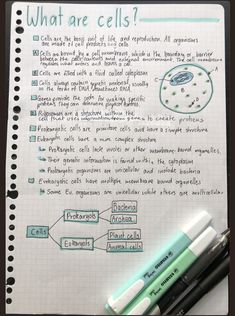 What are cells?
Cells are the basic unit of life and reproduction. All organisms
are made of cell products and cells
Cells are bound by a cell membrane, which is the boundary or barrier
between the cell's contents and external environment. The cell membrane
regulates what enters and exits a cell
Cells are filled with a fluid called cytoplasm
Cells always contain genetic material, usually
in the form of DNA
Genes provide the code for making specific
proteins. They can determine
Ribosomes are a structure within the
cell that uses information from genes to create proteins
Prokaryotic cells are primitive cells and have a simple structure
Eukaryotic cells have a more complex structure
Prokaryotic cells lack nuclei or other membrane-bound organelles.
Their genetic information is found within the cytoplasm
Prokaryotic organisms are unicellular and include bacteria
Eukaryotic cells have multiple membrane bound organelles
Some Eu. organisms are unicellular while others are multicellular
Bacteria
Prokaryote
Archaea
Cells
Plant cells
Eukaryote
Animal cells
STABILO
STABILO